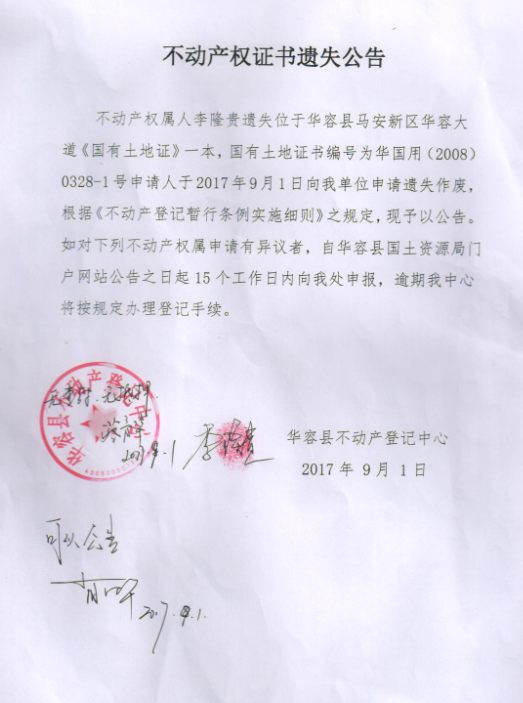 不动产权证书遗失公告
不动产权属人李隆贵遗失位于华容县马安新区华容大
道《国有土地证》一本，国有土地证书编号为华国用（2008）
0328-1号申请人于2017年9月1日向我单位申请遗失作废，
根据《不动产登记暂行条例实施细则》之规定，现予以公告。
如对下列不动产权属申请有异议者，自华容县国土资源局门
户网站公告之日起15个工作日内向我处申报，逾期我中心
将按规定办理登记手续。
华容县不动产登记中心
无查封.无抵押
2017.9.1
李隆贵
华容县不动产登记中心
2017年9月1日
可以公告
2017.9.1.